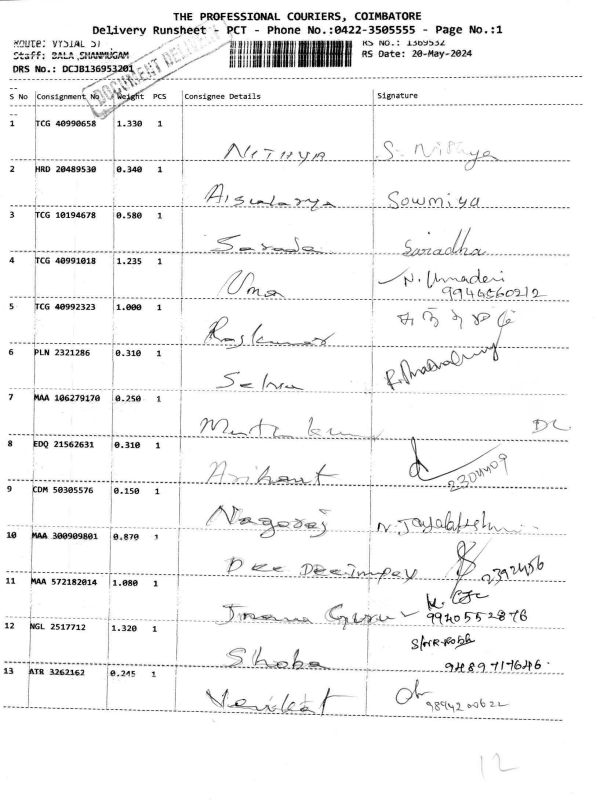 THE PROFESSIONAL COURIERS, COIMBATORE
Delivery Runsheet - PCT - Phone No.:0422-3505555 - Page No.:1
Route: VYSIAL ST RS No.: 1369532
Staff: BALA ,SHANMUGAM RS Date: 20-May-2024
DRS No.: DCJB136953201
DOCUMENT DELIVERY
S No Consignment No Weight PCS Consignee Details Signature
1 TCG 40990658 1.330 1 Nithya S. Nithya
2 HRD 20489530 0.340 1 Aiswarya Sowmiya
3 TCG 10194678 0.580 1 Sarada Saradha
4 TCG 40991018 1.235 1 Uma N. Umadevi
5 TCG 40992323 1.000 1 Rajkumar
6 PLN 2321286 0.310 1 Selva
7 MAA 106279170 0.250 1 DL
8 EDQ 21562631 0.310 1 Arihant
9 CDM 50305576 0.150 1 Nagaraj N. Jayalakshmi
10 MAA 300909801 0.870 1 Dee 2392456
11 MAA 572182014 1.080 1 Guru
9940552876
12 NGL 2517712 1.320 1 Shoba
9489717646
13 ATR 3262162 0.245 1 Venkat 9894200622
12